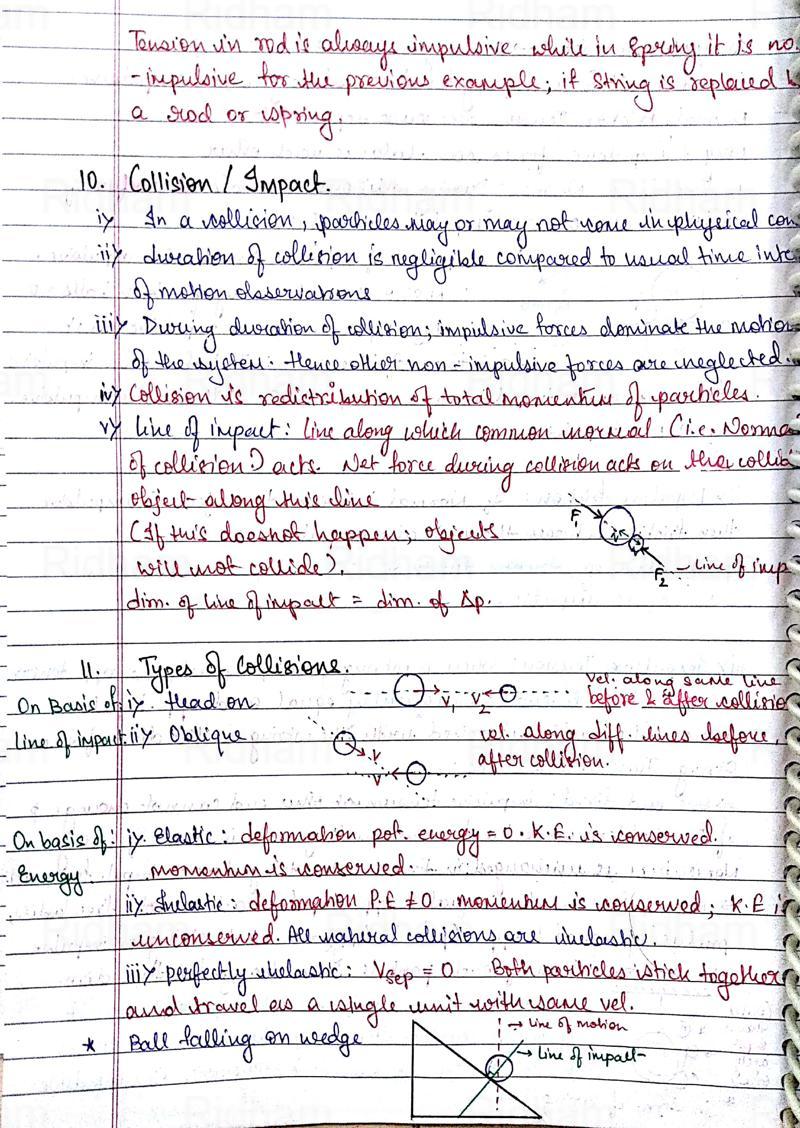 Tension in rod is always impulsive while in spring it is no
-impulsive for the previous example; if string is replaced
a rod or spring.
10. Collision / Impact.
i) In a collision, particles may or may not come in physical con
ii) duration of collision is negligible compared to usual time inte
of motion observations
iii) During duration of collision; impulsive forces dominate the motion
of the system. Hence other non-impulsive forces are neglected.
iv) Collision is redistribution of total momentum of particles.
v) Line of impact: line along which common normal (i.e. Norma
of collision) acts. Net force during collision acts on the collid
object along this line
(If this doesnot happen; objects
will not collide).
F1
F2 - line of imp
dim. of line of impact = dim. of Δp.
11. Types of Collisions.
On Basis of line of impact
i) Head on
V1 V2
vel. along same line before & after collision
ii) Oblique
V
V
vel. along diff. lines before, after collision.
On basis of: Energy
i) Elastic: deformation pot. energy = 0. K.E. is conserved.
momentum is conserved.
ii) Inelastic: deformation P.E ≠ 0. momentum is conserved; K.E i
unconserved. All natural collisions are inelastic.
iii) perfectly inelastic: Vsep = 0 Both particles stick together
and travel as a single unit with same vel.
* Ball falling on wedge
→ line of motion
→ line of impact
Ridham